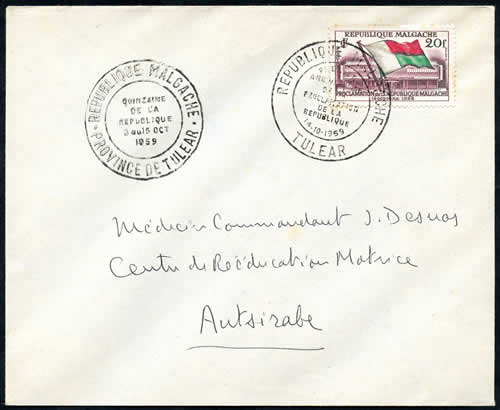 REPUBLIQUE MALGACHE
20f
PROCLAMATION DE LA REPUBLIQUE MALGACHE
14 OCTOBRE 1958
REPUBLIQUE MALGACHE
QUINZAINE
DE LA
REPUBLIQUE
3 au 15 OCT
1959
PROVINCE DE TULEAR
REPUBLIQUE MALGACHE
DE
PROCLAMATION
DE LA
REPUBLIQUE
14-10-1959
TULEAR
Médecin Commandant J. Desnos
Centre de Rééducation Motrice
Antsirabe